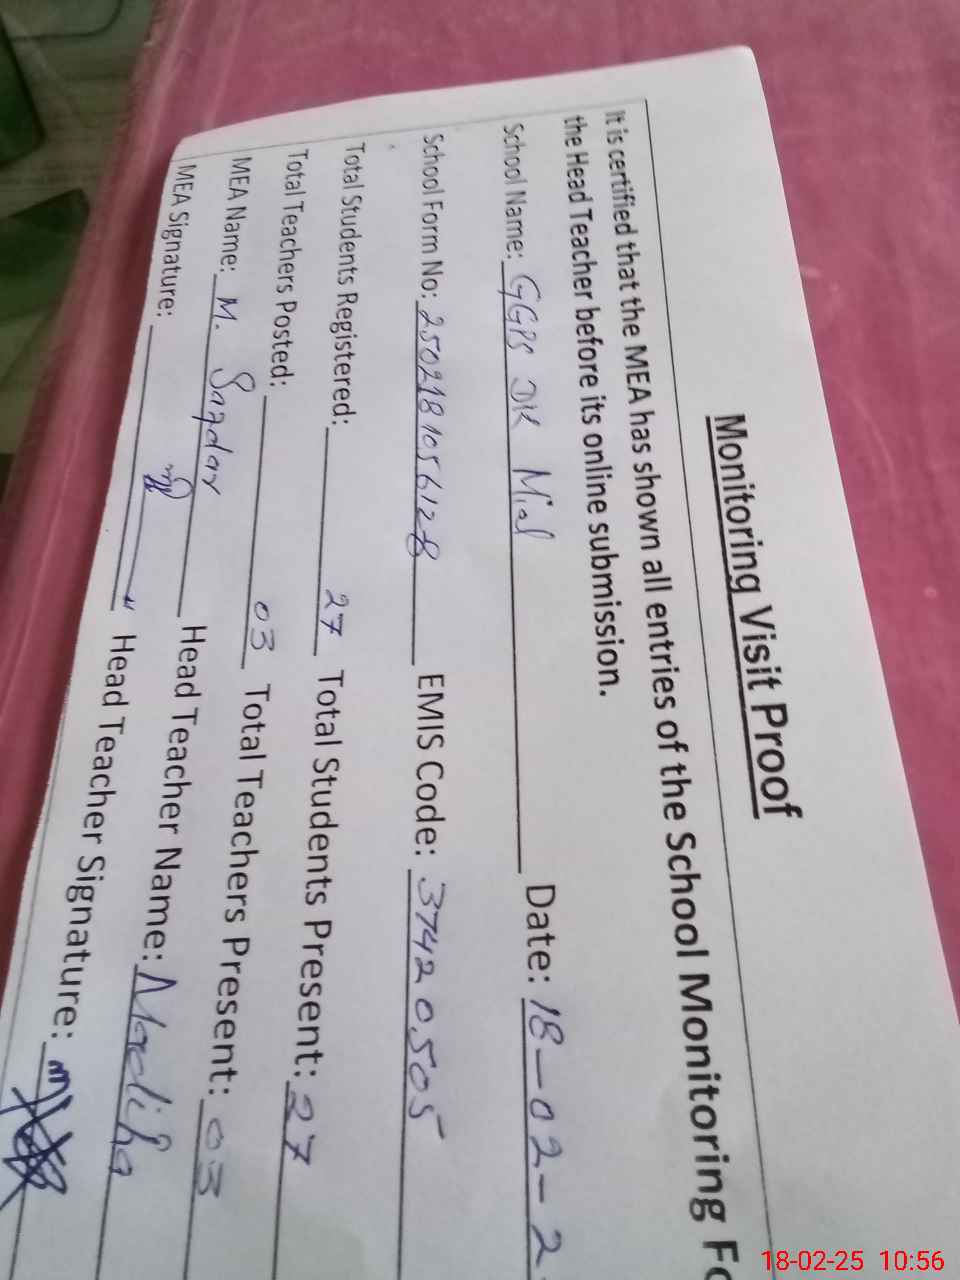 Monitoring Visit Proof
It is certified that the MEA has shown all entries of the School Monitoring Fo
the Head Teacher before its online submission.
School Name: GGPS DK Mial Date: 18-02-2
School Form No: 2502181056128 EMIS Code: 37420505
Total Students Registered: 27 Total Students Present: 27
Total Teachers Posted: 03 Total Teachers Present: 03
MEA Name: M. Safdar Head Teacher Name: Madiha
MEA Signature: Head Teacher Signature:
18-02-25 10:56